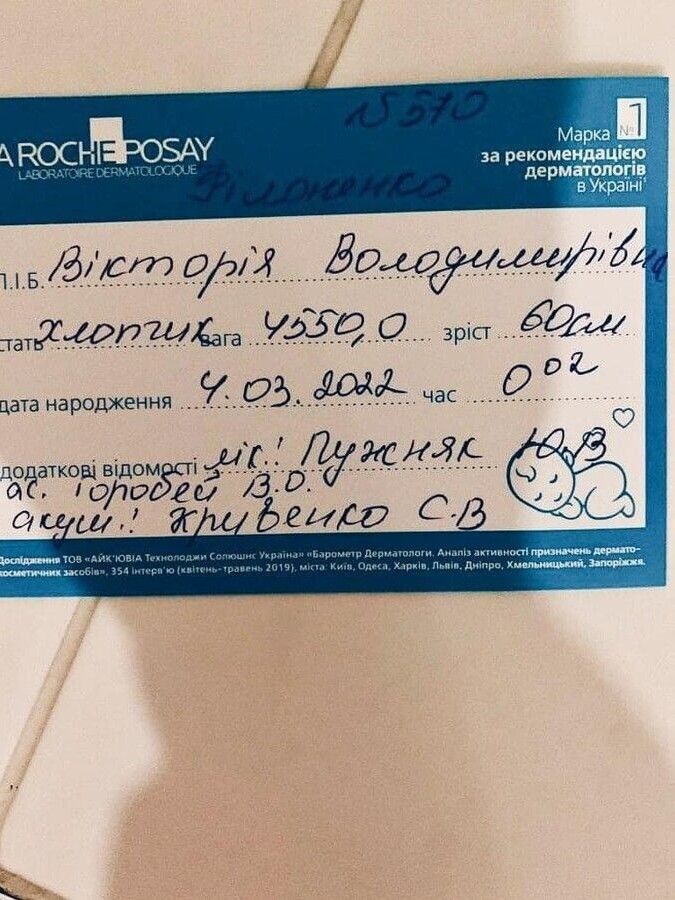 № 570
A ROCHE POSAY
LABORATOIRE DERMATOLOGIQUE
Марка №1
за рекомендацією
дерматологів
в Україні
Філоненко
П.І.Б. Вікторія Володимирівна
стать хлопчик вага 4550,0 зріст 60см
дата народження 4.03.2022 час 0 02
додаткові відомості лік.! Пужняк Ю.В
ас. Горобей В.О.
акуш.! Кривенко С.В
Дослідження ТОВ «АЙК'ЮВІА Технолоджи Солюшнс Україна» «Барометр Дерматологи. Аналіз активності призначень дермато-
косметичних засобів», 354 інтерв'ю (квітень-травень 2019), міста: Київ, Одеса, Харків, Львів, Дніпро, Хмельницький, Запоріжжя.